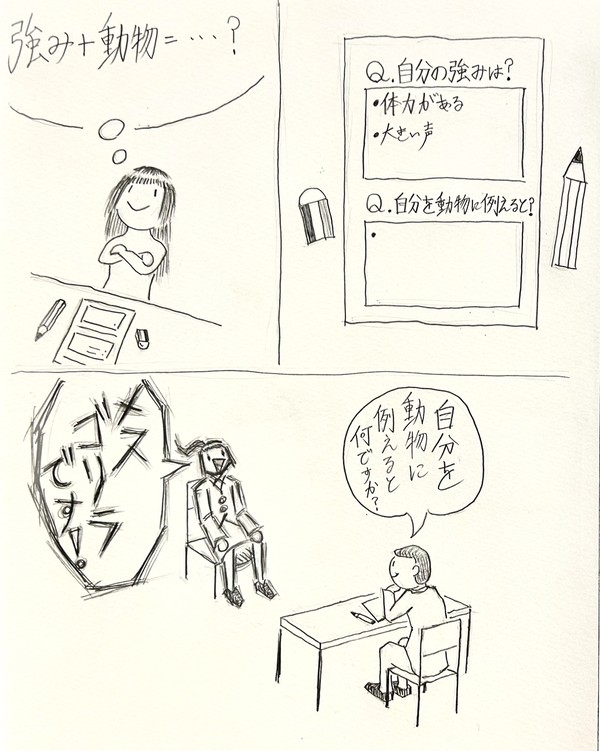 Q.自分の強みは?
・体力がある
・大きい声
Q.自分を動物に例えると?
・
強み+動物=…?
自分を
動物に
例えると
何ですか?
メス
ゴリラ
です!